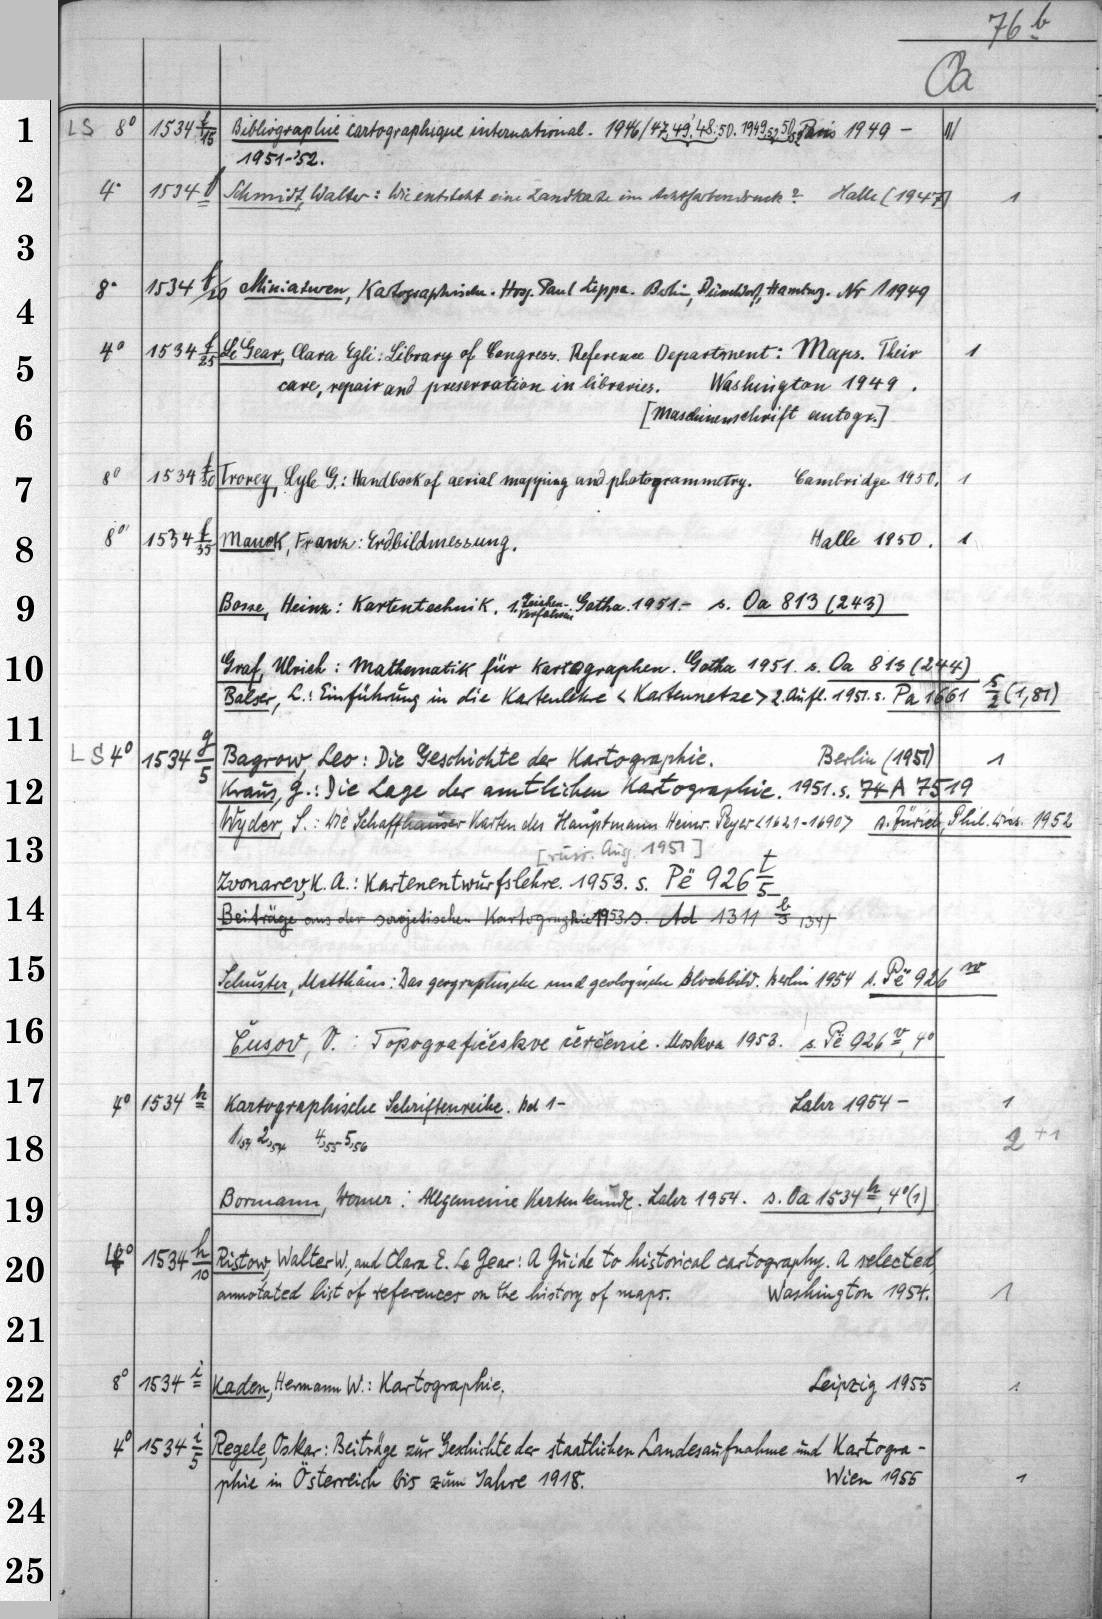 76 b
Oa
1 LS 8° 1534 f/15 Bibliographie cartographique international. 1946/47, 49, 48. 50. 1949, 50, Paris 1949 -
1951-52.
2 4° 1534 f Schmidt, Walter: Wie entsteht eine Landkarte im Achtfarbendruck? Halle (1947) 1
3
4 8° 1534 f/20 Miniaturen, Kartographische. Hrsg. Paul Kippa. Berlin, Düsseldorf, Hamburg. Nr 1 1949
5 4° 1534 f/25 Le Gear, Clara Egli: Library of Congress. Reference Department: Maps. Their 1
care, repair and preservation in libraries. Washington 1949.
6 [Maschinenschrift autogr.]
7 8° 1534 f/30 Trorey, Lyle G.: Handbook of aerial mapping and photogrammetry. Cambridge 1950. 1
8 8° 1534 f/35 Manek, Franz: Erdbildmessung. Halle 1950. 1
9 Bosse, Heinz: Kartentechnik. 1. Zeichen-Verfahren Gotha 1951.- s. Oa 813 (243)
10 Graf, Ulrich: Mathematik für Kartographen. Gotha 1951. s. Oa 813 (244)
Balser, L.: Einführung in die Kartenlehre <Kartennetze> 2. Aufl. 1951. s. Pa 1661 s/2 (1,81)
11 LS 4° 1534 g/5 Bagrow, Leo: Die Geschichte der Kartographie. Berlin (1951) 1
12 Kraus, G.: Die Lage der amtlichen Kartographie. 1951. s. 74 A 7519
Wyder, S.: Die Schaffhauser Karten des Hauptmann Heinr. Peyer <1621-1690> s. Zürich, Phil. Diss. 1952
13 [russ. Ausg. 1951]
Zvonarev, K. A.: Kartenentwurfslehre. 1953. s. Pë 926 t/5
14 Beiträge aus der sowjetischen Kartographie 1953. s. Ad 1311 b/5 (34)
15 Schuster, Matthäus: Das geographische und geologische Blockbild. Berlin 1954 s. Pë 926 w
16 Čusov, V.: Topografičeskoe čerčenie. Moskva 1953. s. Pë 926 v, 4°
17 4° 1534 h Kartographische Schriftenreihe. Bd 1- Lahr 1954 - 1
18 1,54 2,54 4,55 5,56 2 +1
19 Bormann, Werner: Allgemeine Kartenkunde. Lahr 1954. s. Oa 1534 h, 4° (1)
20 4° 1534 h/10 Ristow, Walter W., and Clara E. Le Gear: A Guide to historical cartography. A selected,
annotated list of references on the history of maps. Washington 1954. 1
21
22 8° 1534 i Kaden, Hermann W.: Kartographie. Leipzig 1955 1
23 4° 1534 i/5 Regele, Oskar: Beiträge zur Geschichte der staatlichen Landesaufnahme und Kartogra-
phie in Österreich bis zum Jahre 1918. Wien 1955 1
24
25